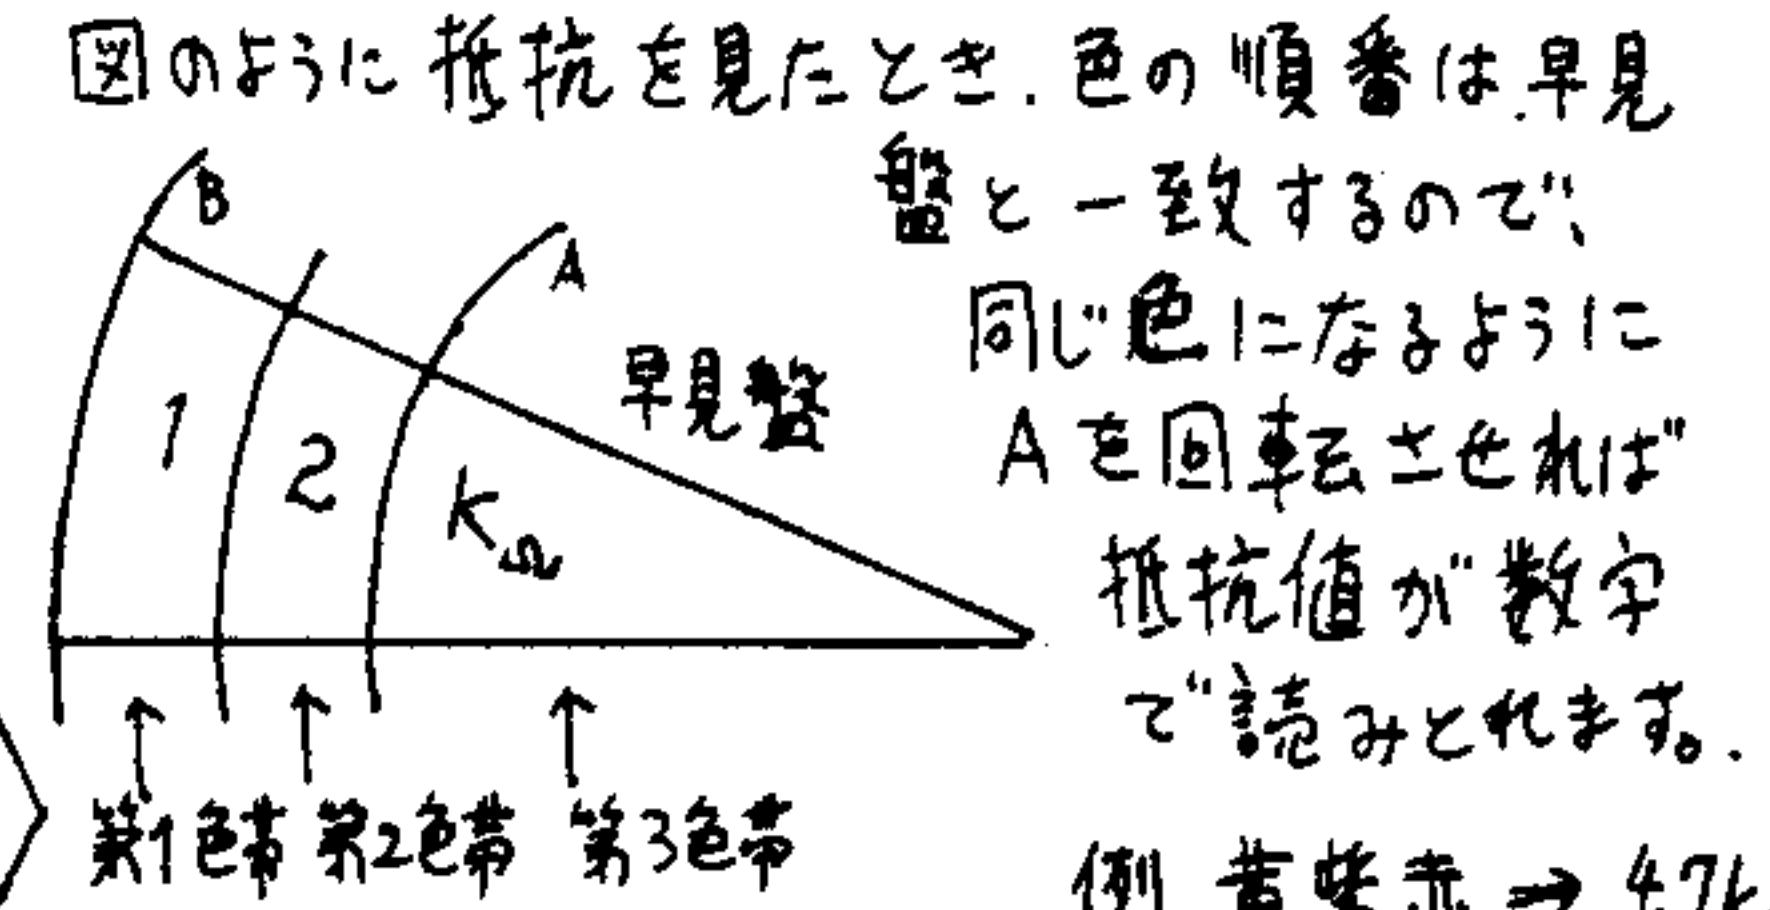 図のように抵抗を見たとき.色の順番は.早見
盤と一致するので、
同じ色になるように
Aを回転させれば
抵抗値が数字
で読みとれます。.
B
A
早見盤
1
2
KΩ
↑ ↑ ↑
第1色帯 第2色帯 第3色帯
例 黄紫赤→4.7k